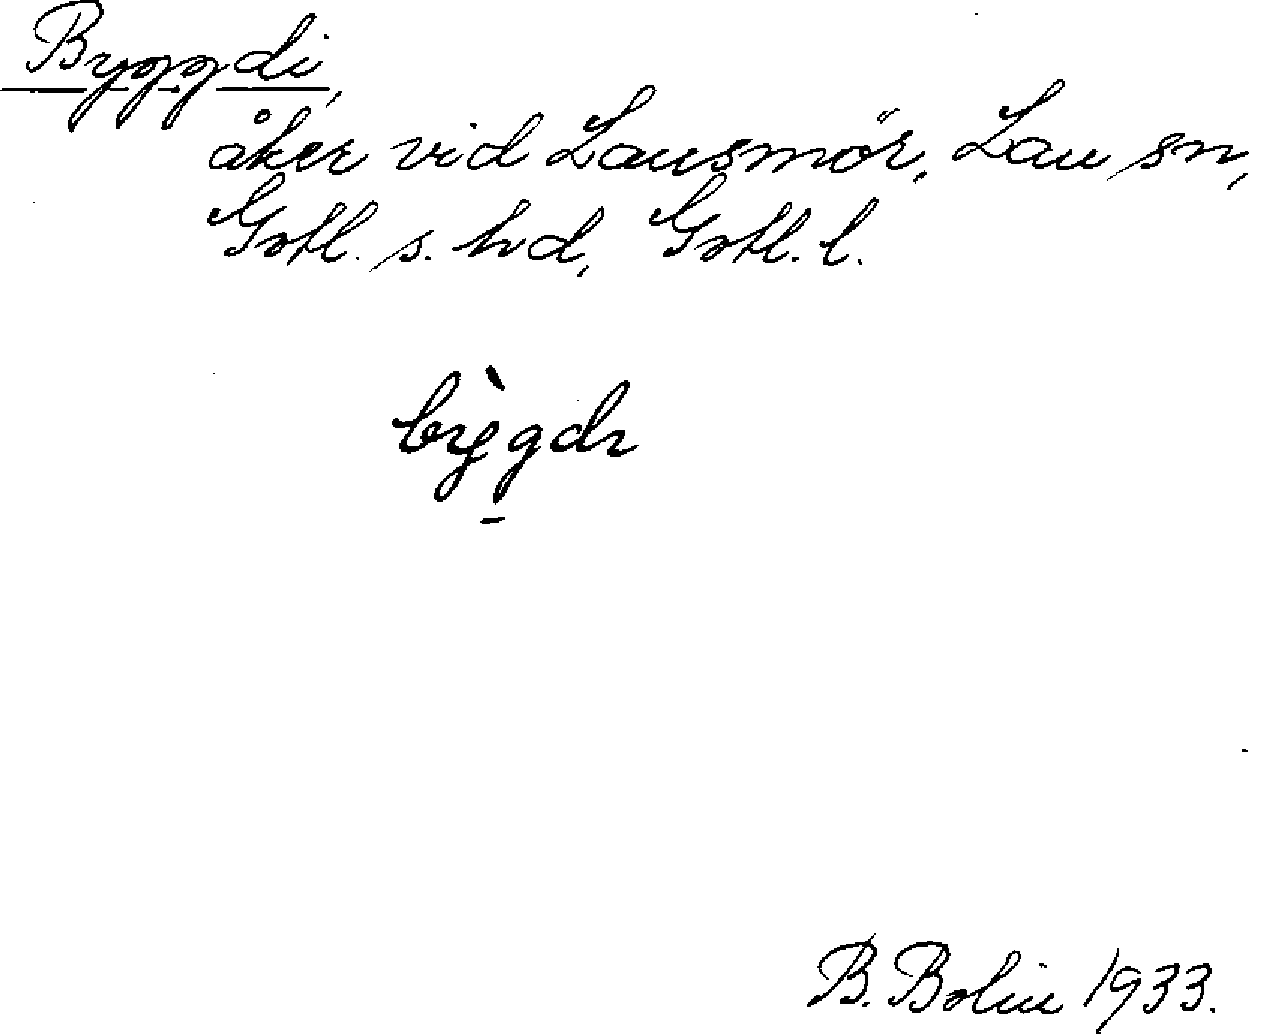 Byggdi,
åker vid Lausmör, Lau sn,
Gotl. s. hd, Gotl. l.
bỳgdı
B. Bolin 1933.